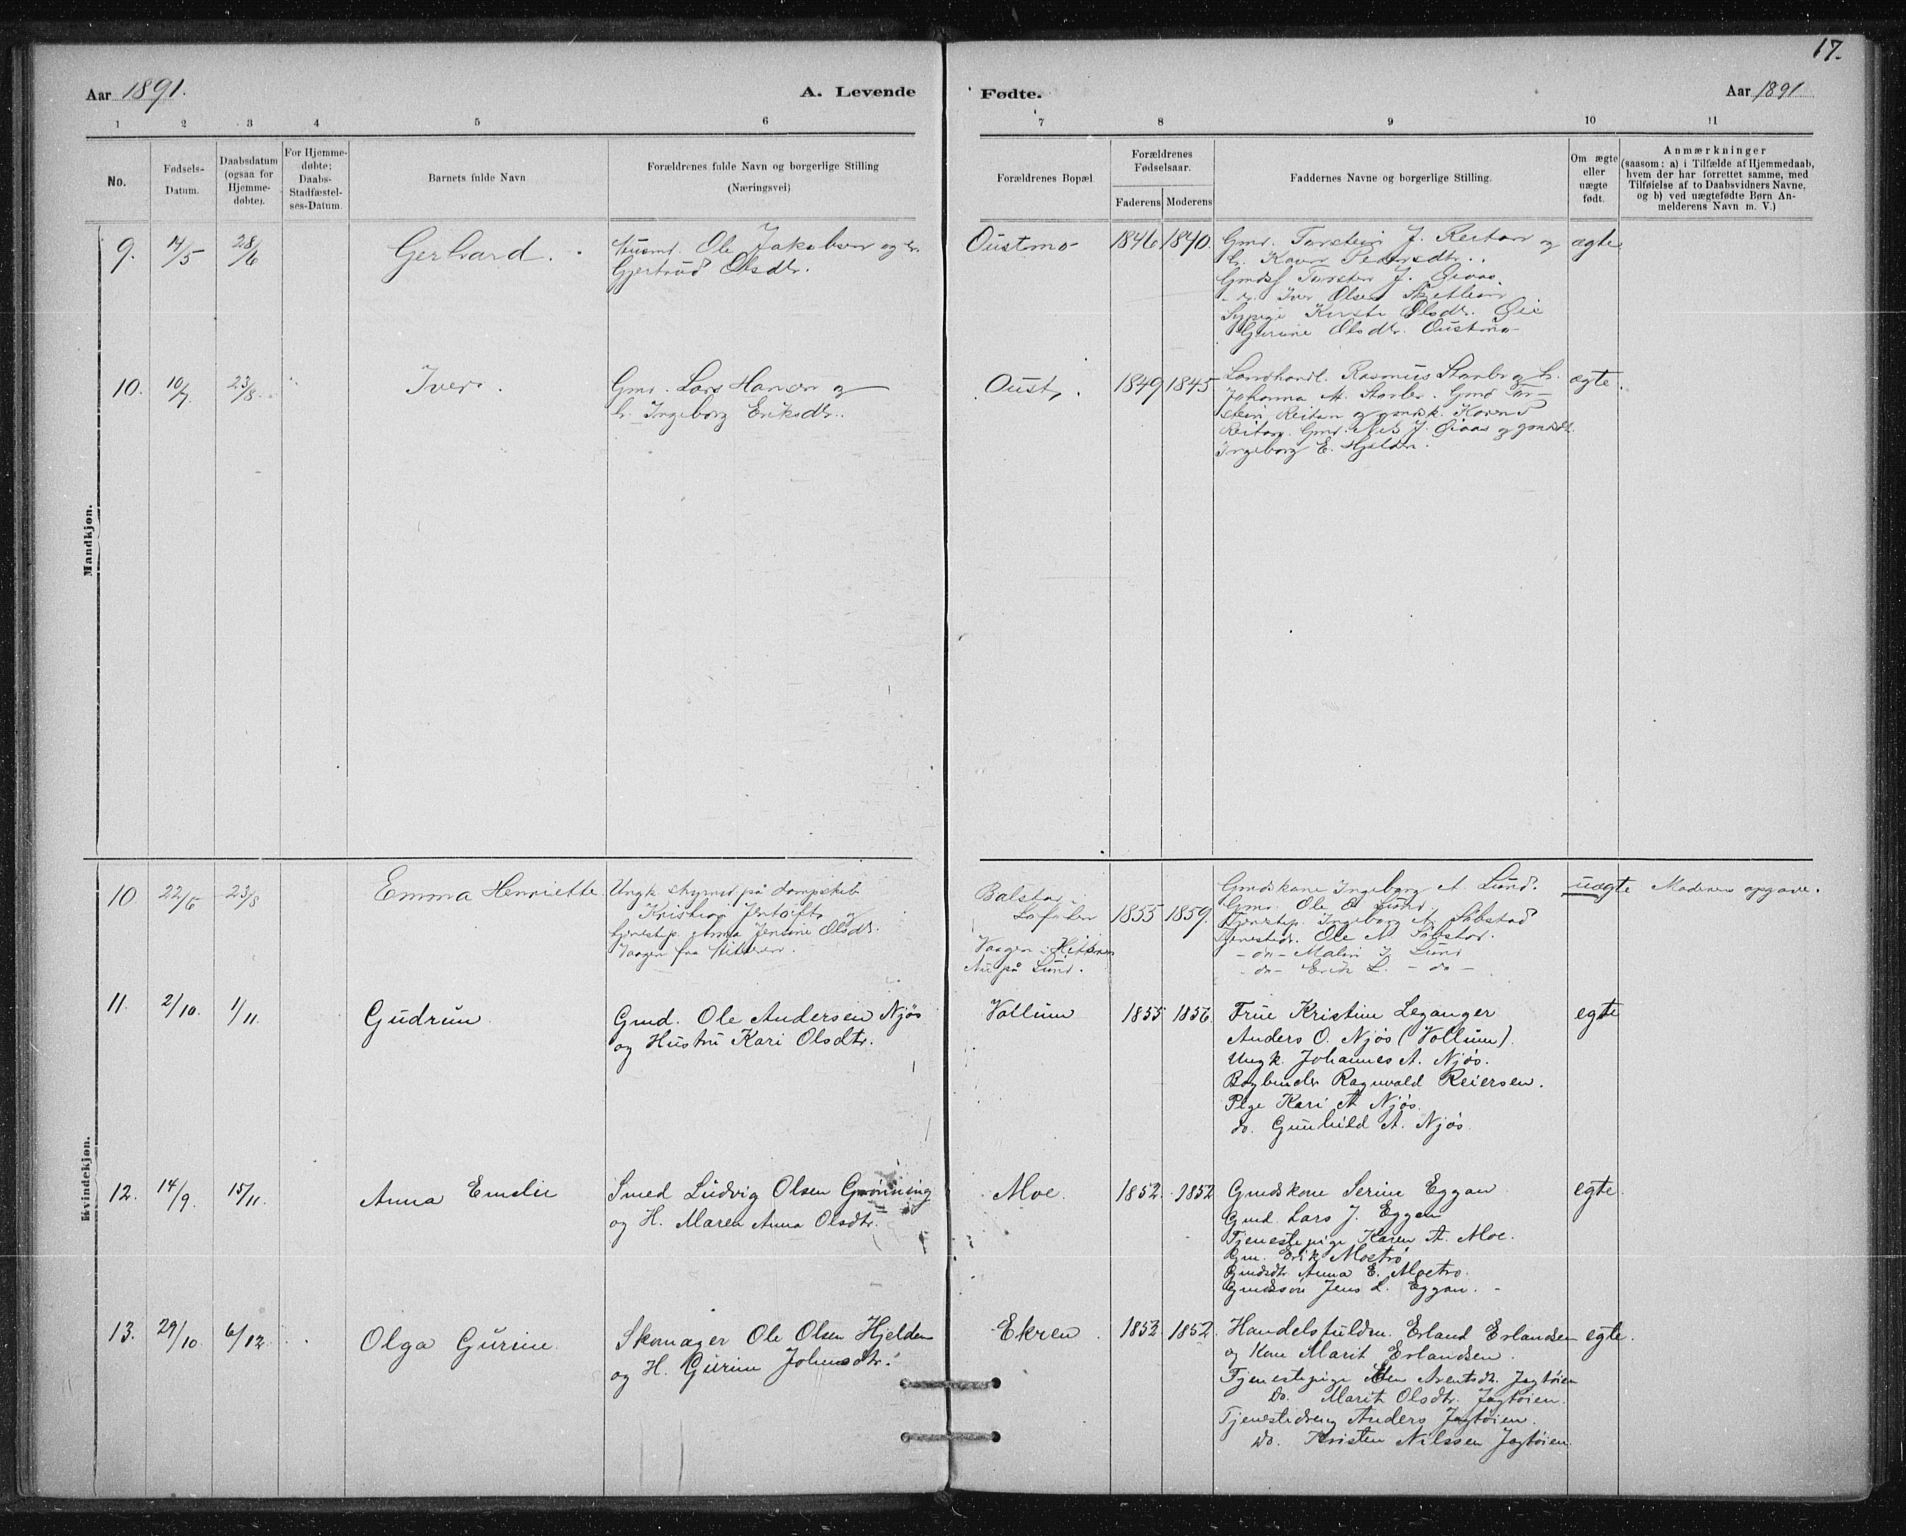 17.
Aar 1891. A. Levende Fødte. Aar 1891
1 2 3 4 5 6 7 8 9 10 11
No.
Fødsels-
Datum.
Daabsdatum
(ogsaa for
Hjemme-
døbte).
For Hjemme-
døbte;
Daabs-
Stadfæstel-
ses-Datum.
Barnets fulde Navn
Forældrenes fulde Navn og borgerlige Stilling
(Næringsvei)
Forældrenes Bopæl.
Forældrenes
Fødselsaar.
Faderens Moderens
Faddernes Navne og borgerlige Stilling.
Om ægte
eller
uægte
født.
Anmærkninger
(saasom: a) i Tilfælde af Hjemmedaab,
hvem der har forrettet samme, med
Tilføielse af to Daabsvidners Navne,
og b) ved uægtefødte Børn An-
melderens Navn m. V.)
Mandkjøn.
9. 14/5 28/6 Gerhard.
Husmd. Ole Jakobsen og h.
Gjertrud Olsdtr.
Oustmo 1846 1840.
Gmd. Torstein J. Reitan og
h. Karen Pedersdtr.
Gmdsf Torsten J. Øiaas.
Iver Olsen
Sypige Kirsti Olsdtr. Øie
Gurine Olsdtr. Oustmo
ægte
10. 10/7 23/8 Iver.
Gmd. Lars Hansen og
h. Ingeborg Eriksdtr.
Oust. 1849 1845
Landhandl. Rasmus Storler og h.
Johanna M. Storler. Gmd Tor-
stein Reitan og gmdsk. Karen
Reitan. Gmd. Nils J. Øiaas og gmdsdt.
Ingeborg E. Hjelden.
ægte.
Kvindekjøn.
10 22/5 23/8 Emma Henriette.
Ungk. styrmd på dampskib
Kristian Jentoft og
tjenestep. Anna Jensine Olsdtr.
Vaagen fra Hitteren.
Balstad
Lofoten
Vaagen i Hitteren
Nu på Lund.
1855 1859.
Gmdskone Ingeborg A. Lund.
Gmd. Ole E Lund.
Tjenestep. Ingeborg A. Søbstad
Tjenestedr. Ole A Søbstad.
- do - Malin J. Lund
- do - Erik L. - do -
uægte Moderens opgave.
11. 2/10. 1/11. Gudrun
Gmd. Ole Andersen Njøs
og Hustru Kari Olsdtr.
Vollum 1855 1856.
Frue Kristine Leganger
Anders O. Njøs (Vollum).
Ungk. Johannes A. Njøs.
Bogbinder Ragnvald Reiersen.
Pige Kari A Njøs.
do. Gunhild A. Njøs.
egte
12. 14/9. 15/11. Anna Emelie
Smed Ludvig Olsen Grønning
og H. Maren Anna Olsdtr.
Moe. 1852. 1852
Gmdskone Serine Eggan
Gmd. Lars J. Eggen
Tjenestepige Karen A. Moe.
Gm. Erik Moetrø
Gmdsdtr Anna E. Moetrø.
Gmdssøn Jens L. Eggan.
egte.
13. 29/10 6/12. Olga Gurine
Skomager Ole Olsen Hjelden
og H. Gurine Johnsdtr.
Ekren. 1852 1852.
Handelsfuldm. Erland Erlandsen
og Kone Marit Erlandsen.
Tjenestepige Arentsdt. Jagtøien
Do. Marit Olsdtr. Jagtøien.
Tjenestedreng Anders Jagtøien.
Do. Kristen Nilssen Jagtøien.
egte.